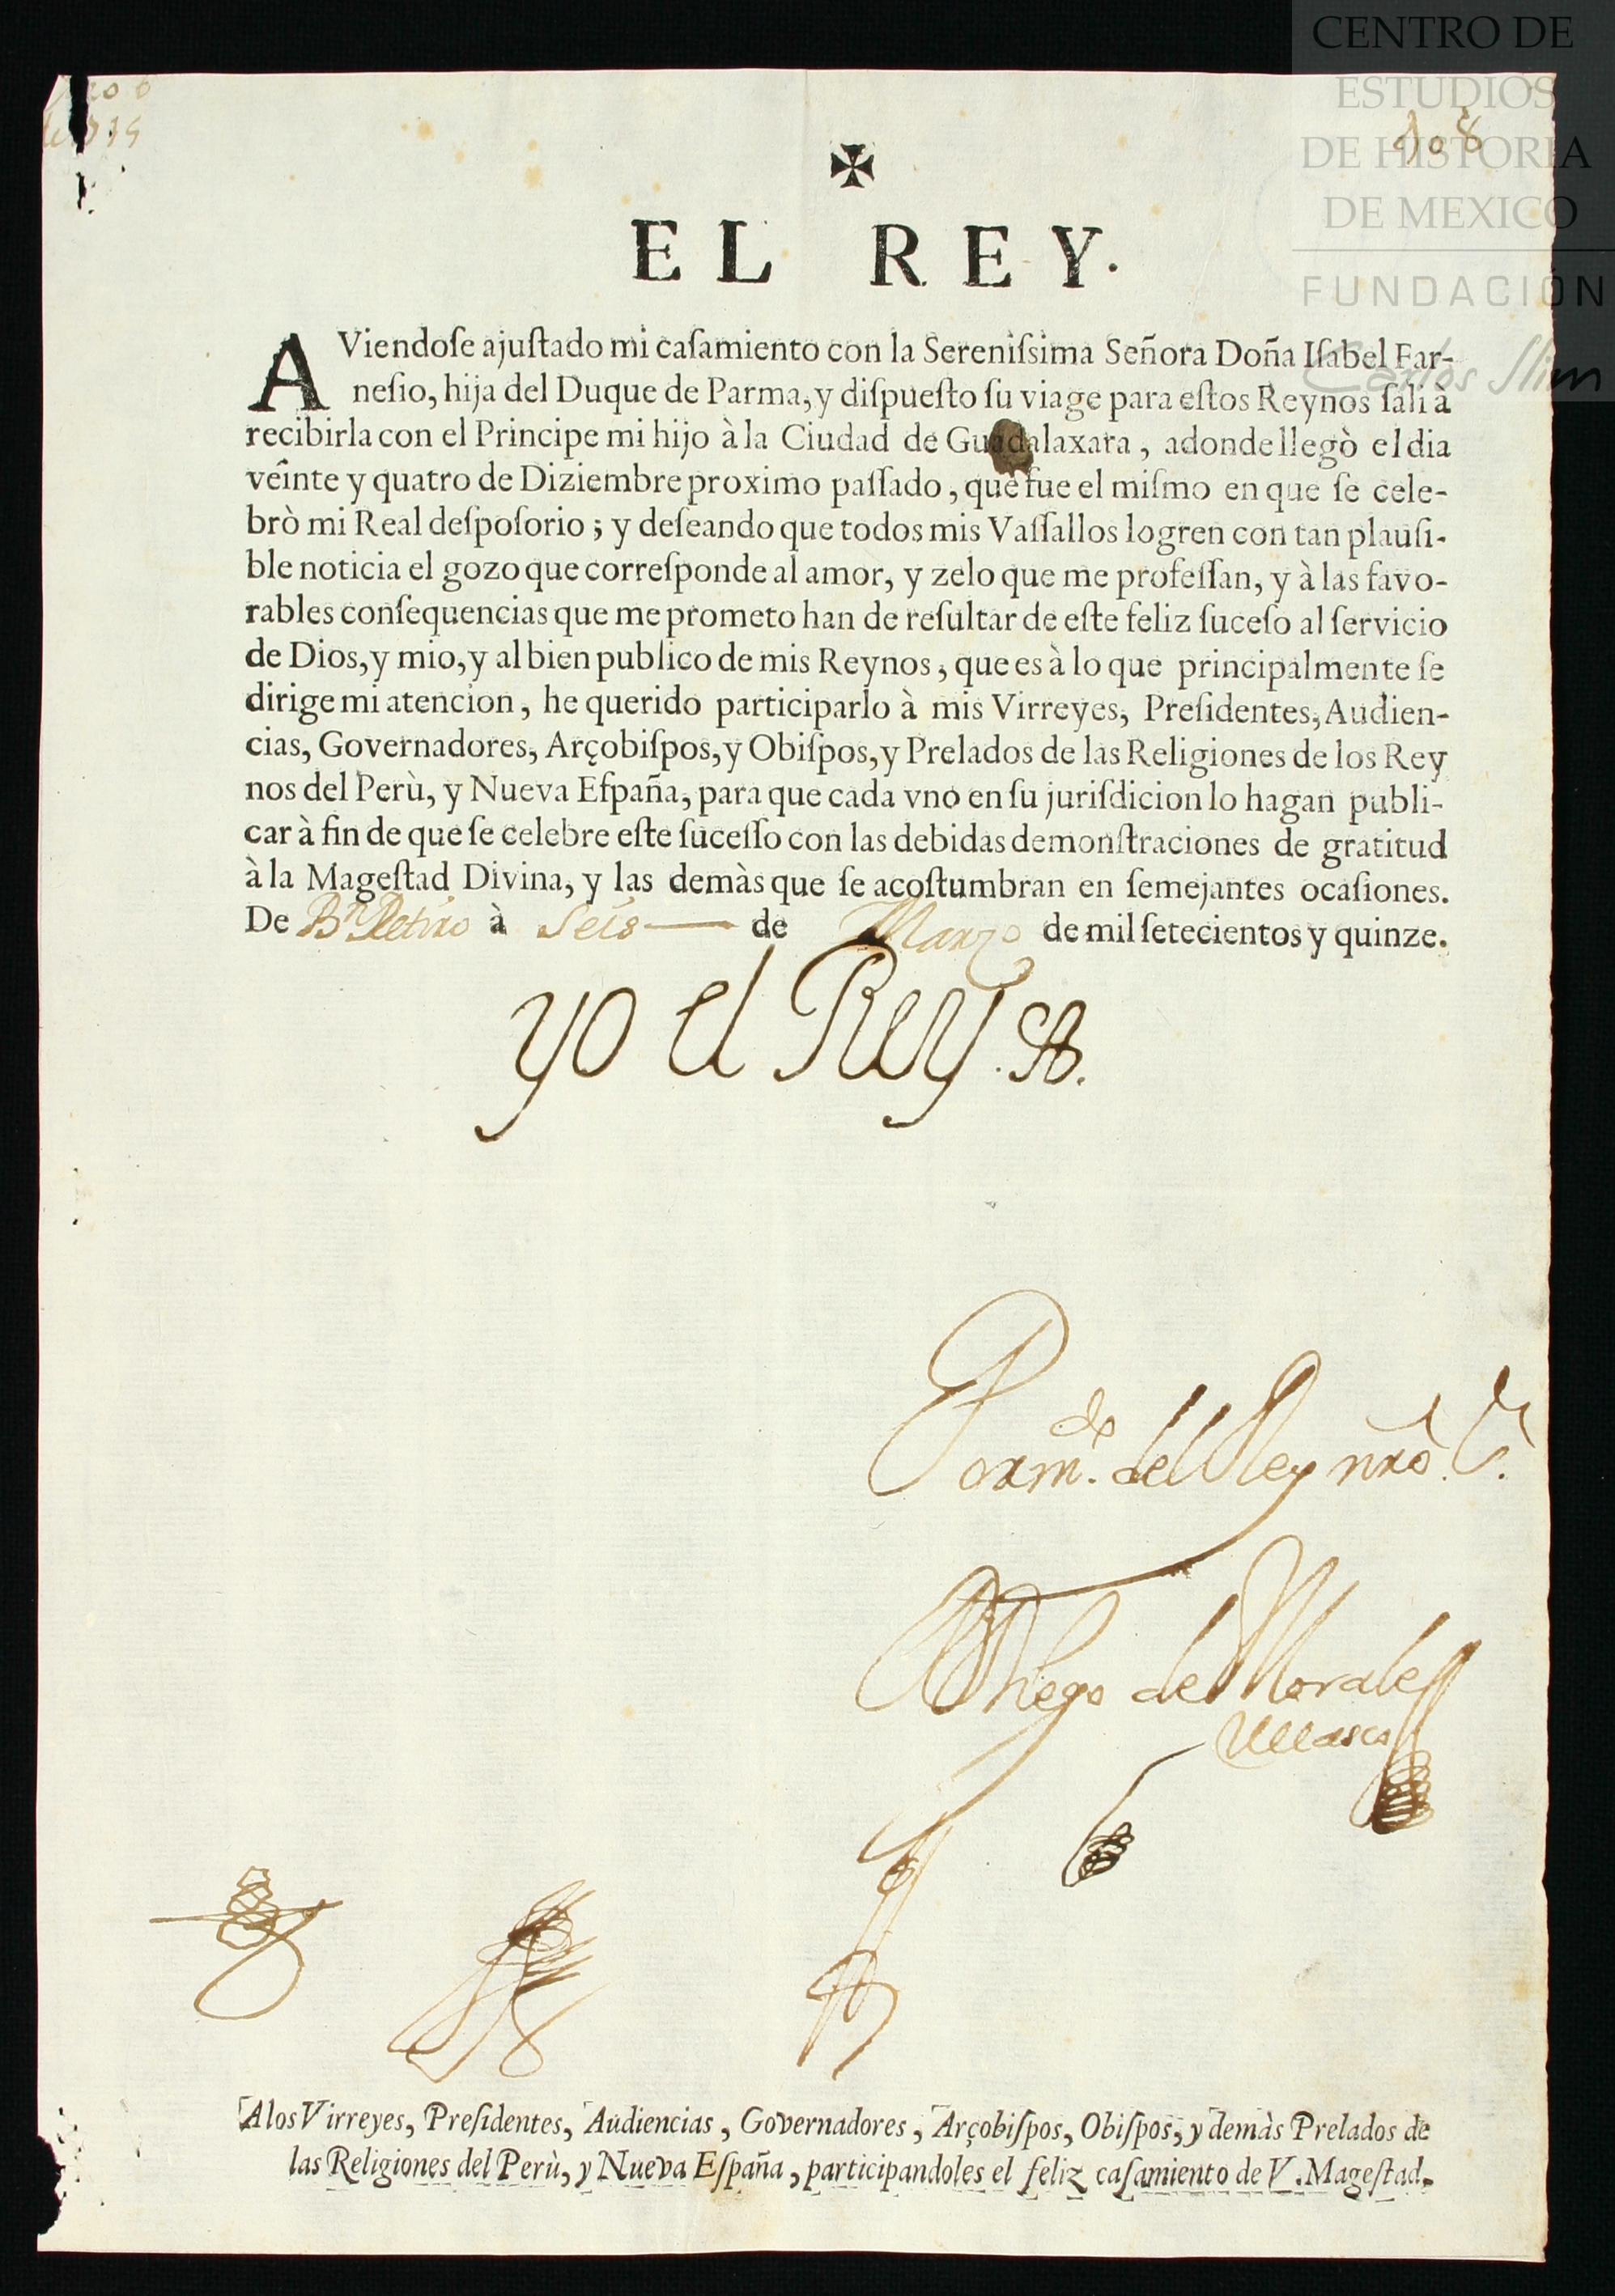 CENTRO DE
ESTUDIOS
DE HISTORIA
DE MEXICO
FUNDACIÓN
Carlos Slim
108
✠
EL REY.
AViendoſe ajuſtado mi caſamiento con la Sereniſsima Señora Doña Iſabel Far-
neſio, hija del Duque de Parma, y diſpueſto ſu viage para eſtos Reynos ſali à
recibirla con el Principe mi hijo à la Ciudad de Guadalaxara, adonde llegò el dia
veinte y quatro de Diziembre proximo paſſado, que fue el miſmo en que ſe cele-
brò mi Real deſpoſorio; y deſeando que todos mis Vaſſallos logren con tan plauſi-
ble noticia el gozo que correſponde al amor, y zelo que me profeſſan, y à las favo-
rables conſequencias que me prometo han de reſultar de eſte feliz ſuceſo al ſervicio
de Dios, y mio, y al bien publico de mis Reynos, que es à lo que principalmente ſe
dirige mi atencion, he querido participarlo à mis Virreyes, Preſidentes, Audien-
cias, Governadores, Arçobiſpos, y Obiſpos, y Prelados de las Religiones de los Rey
nos del Perù, y Nueva Eſpaña, para que cada vno en ſu juriſdicion lo hagan publi-
car à fin de que ſe celebre eſte ſuceſſo con las debidas demonſtraciones de gratitud
à la Mageſtad Divina, y las demàs que ſe acoſtumbran en ſemejantes ocaſiones.
De Bn Retiro à Seis de Marzo de mil ſetecientos y quinze.
yo el Rey
Por mdo. del Rey nro. Sr.
Diego de Morales
Velasco
A los Virreyes, Preſidentes, Audiencias, Governadores, Arçobiſpos, Obiſpos, y demàs Prelados de
las Religiones del Perù, y Nueva Eſpaña, participandoles el feliz caſamiento de V. Mageſtad.